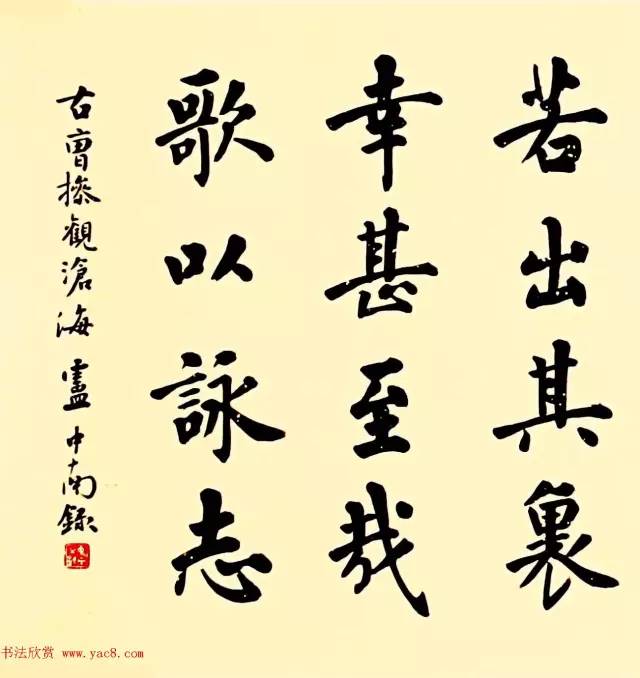 若出其裏
幸甚至哉
歌以詠志
右曹操觀滄海 盧中南錄
书法欣赏 www.yac8.com